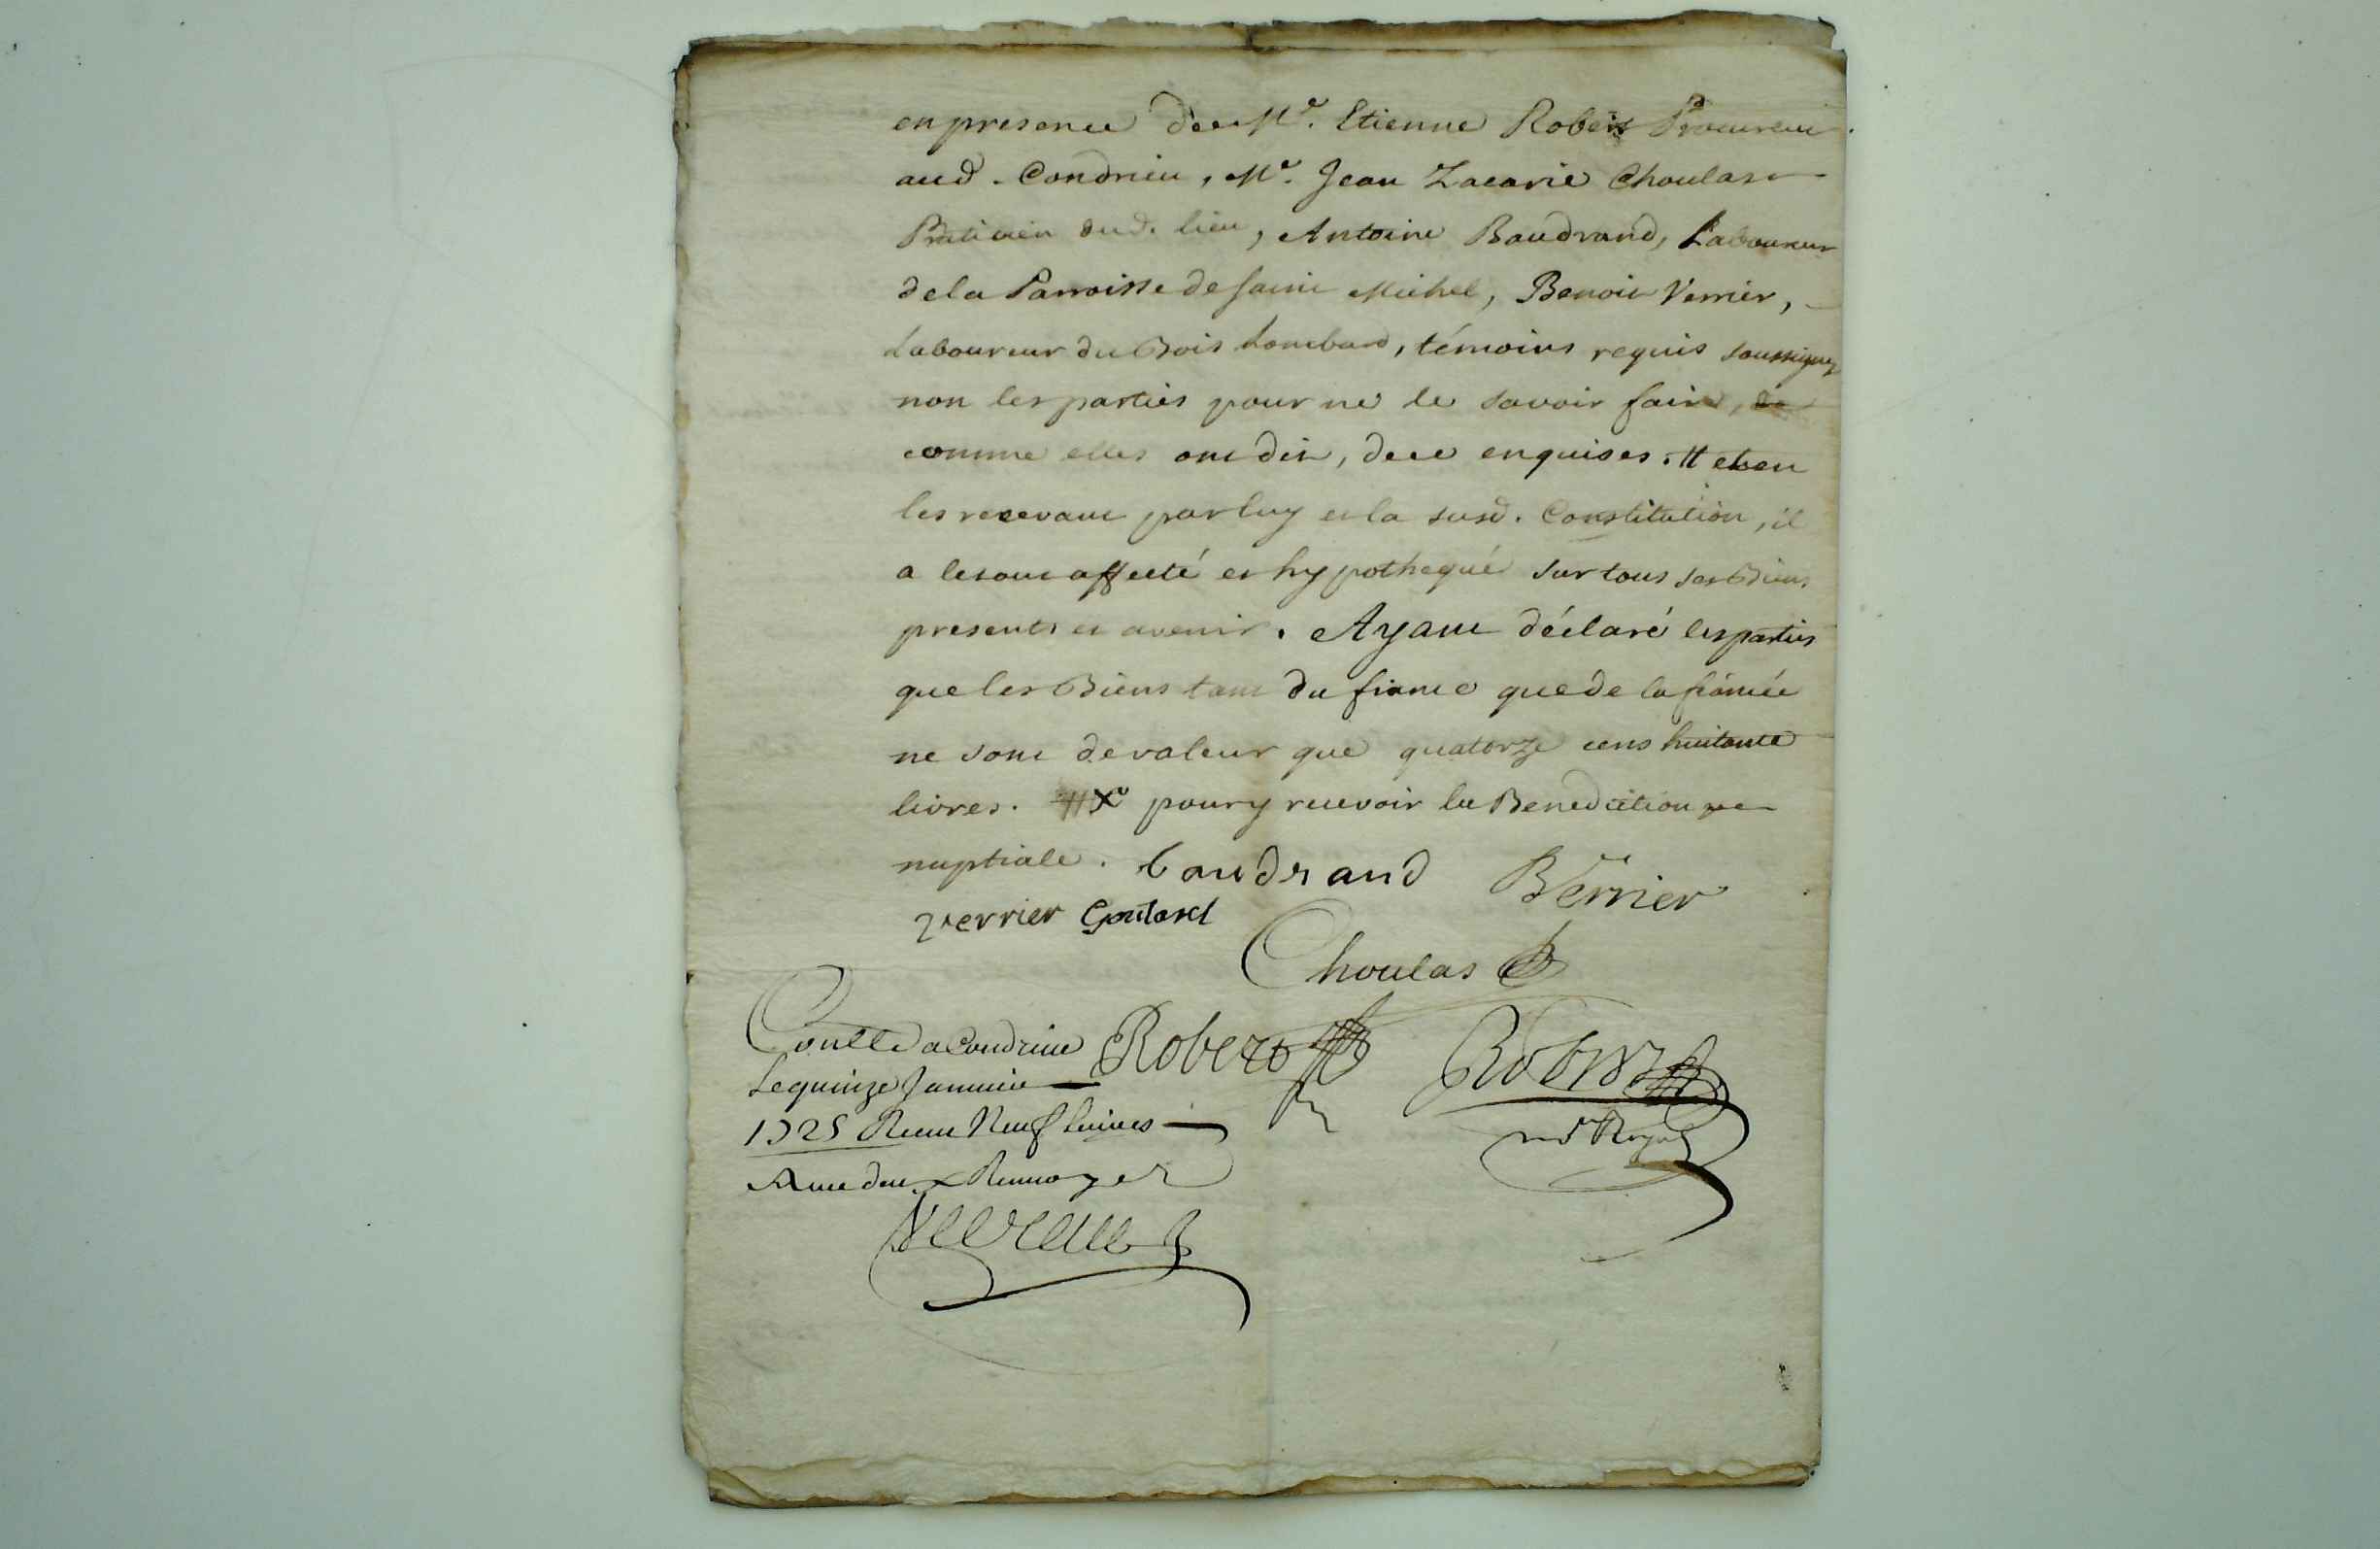 en presence de Me. Etienne Robert Procureur
aud. Condrieu, Me. Jean Zacarie Choulas
Praticien dud. lieu, Antoine Baudrand, Laboureur
de la Parroisse de Saint Michel, Benoit Verrier,
Laboureur du Bois Lombard, témoins requis soussignez
non les parties pour ne le savoir faire, de
comme elles ont dit, de ce enquises. # et en
les recevant par luy et la susd. Constitution, il
a le tout affecté et hypothequé sur tous ses Biens
presents et avenir. Ayant déclaré les parties
que les Biens tant du fiancé que de la fiancée
ne sont de valeur que quatorze cens huitante
livres. # X pour y recevoir la Benediction
nuptiale. baudrand BVerrier
verrier Goutard
Choulas
Conllé a Condrieu Robert Robert
Le quinze Janvier
1725 Receu Neuf livres nre Royal